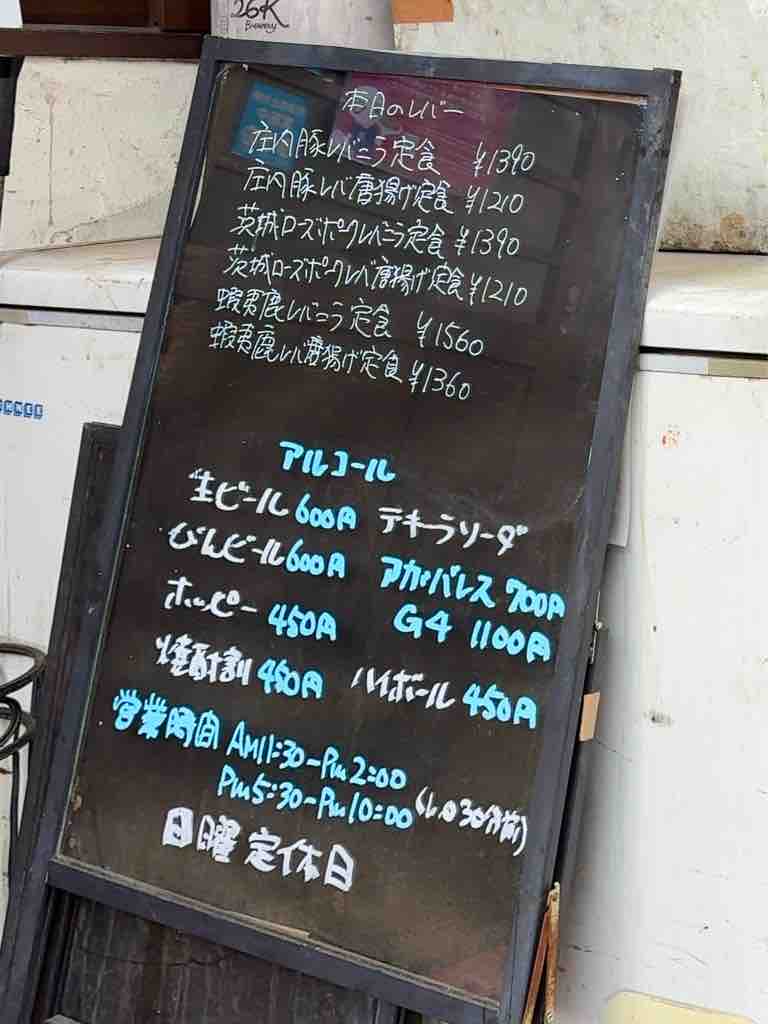 26K
Brewery
本日のレバー
庄内豚レバニラ定食 ¥1390
庄内豚レバ唐揚げ定食 ¥1210
茨城ローズポークレバニラ定食 ¥1390
茨城ローズポークレバ唐揚げ定食 ¥1210
蝦夷鹿レバニラ定食 ¥1560
蝦夷鹿レバ唐揚げ定食 ¥1360
アルコール
生ビール 600円 テキーラソーダ
びんビール 600円 アガバレス 700円
ホッピー 450円 G4 1100円
焼酎割 450円 ハイボール 450円
営業時間 AM11:30-PM2:00
PM5:30-PM10:00 (L.O 30分前)
日曜定休日